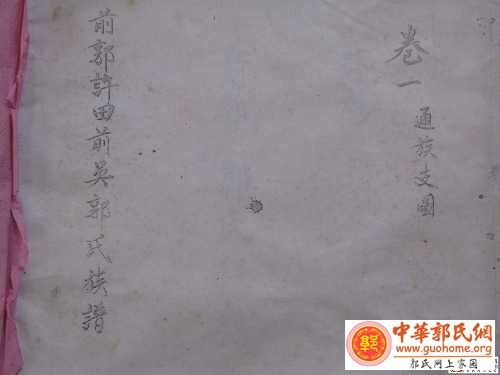 卷一 通族支圖
前郭許田前吳郭氏族譜
郭
中華郭氏網
www.guohome.org
郭氏网上家园